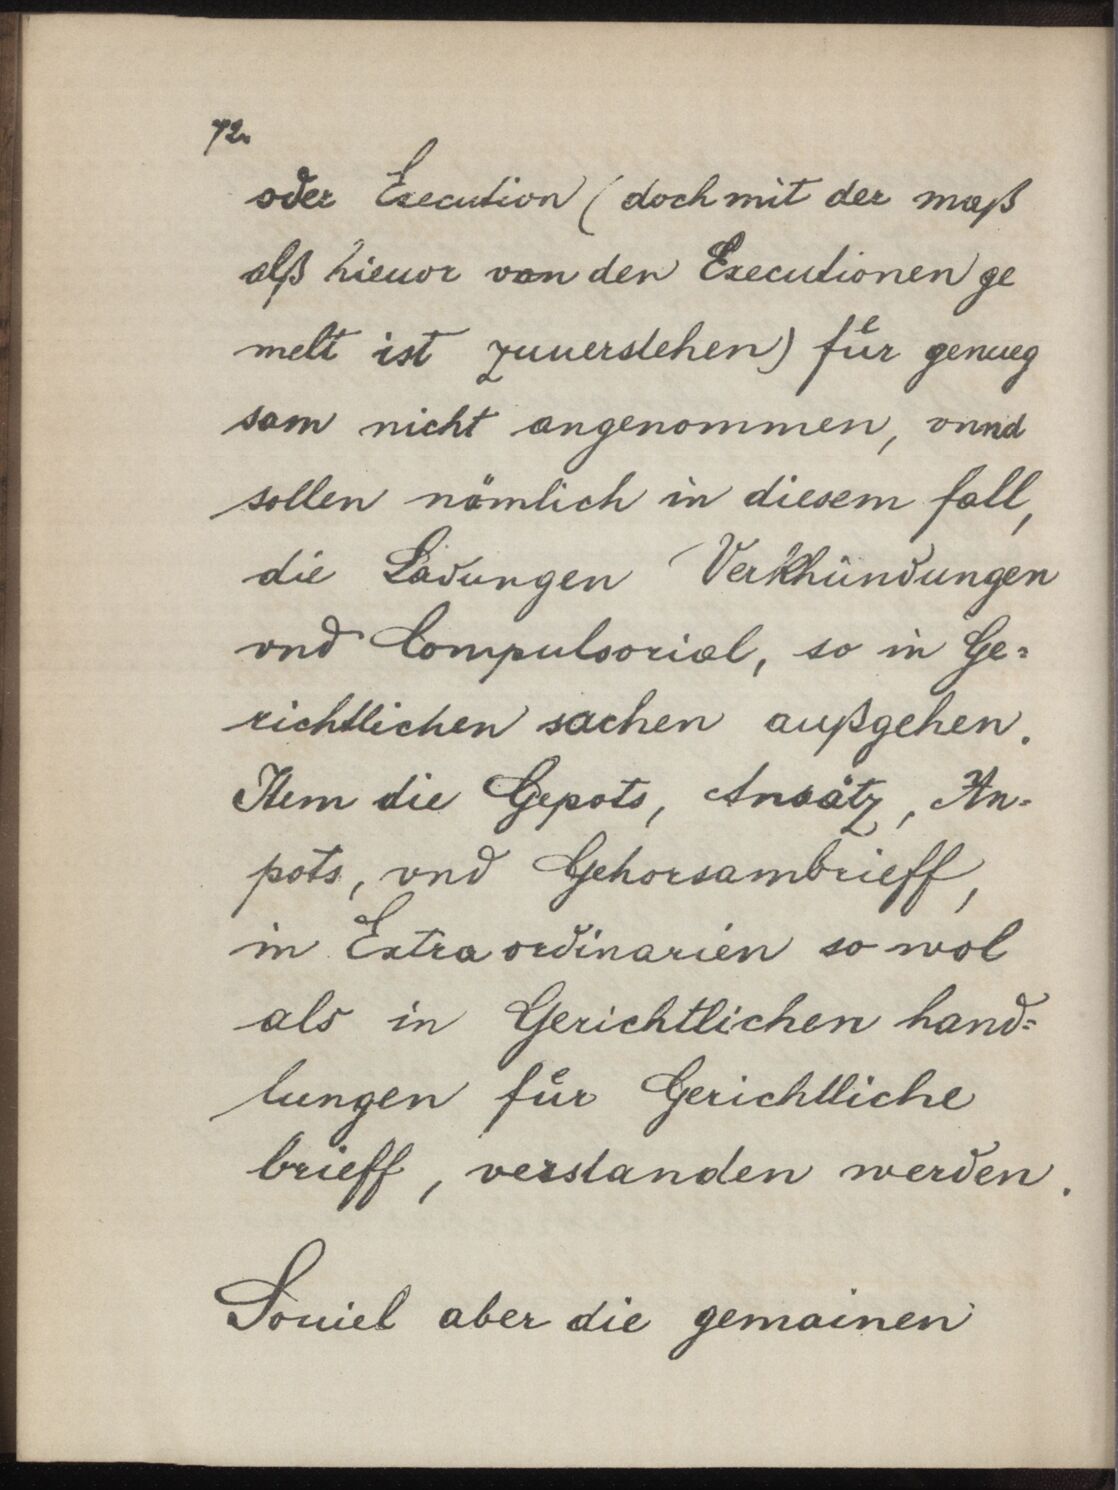 72.
oder Execution (doch mit der maß
alß hieuor von den Executionen ge
melt ist zuuerstehen) für genueg
sam nicht angenommen, vnnd
sollen nämlich in diesem fall,
die Ladungen Verkhündungen
vnd Compulsorial, so in Ge=
richtlichen sachen außgehen.
Item die Gepots, Ansätz, An=
pots, vnd Gehorsambrieff,
in Extra ordinarien so wol
als in Gerichtlichen hand=
lungen für Gerichtliche
brieff, verstanden werden.
Souiel aber die gemainen